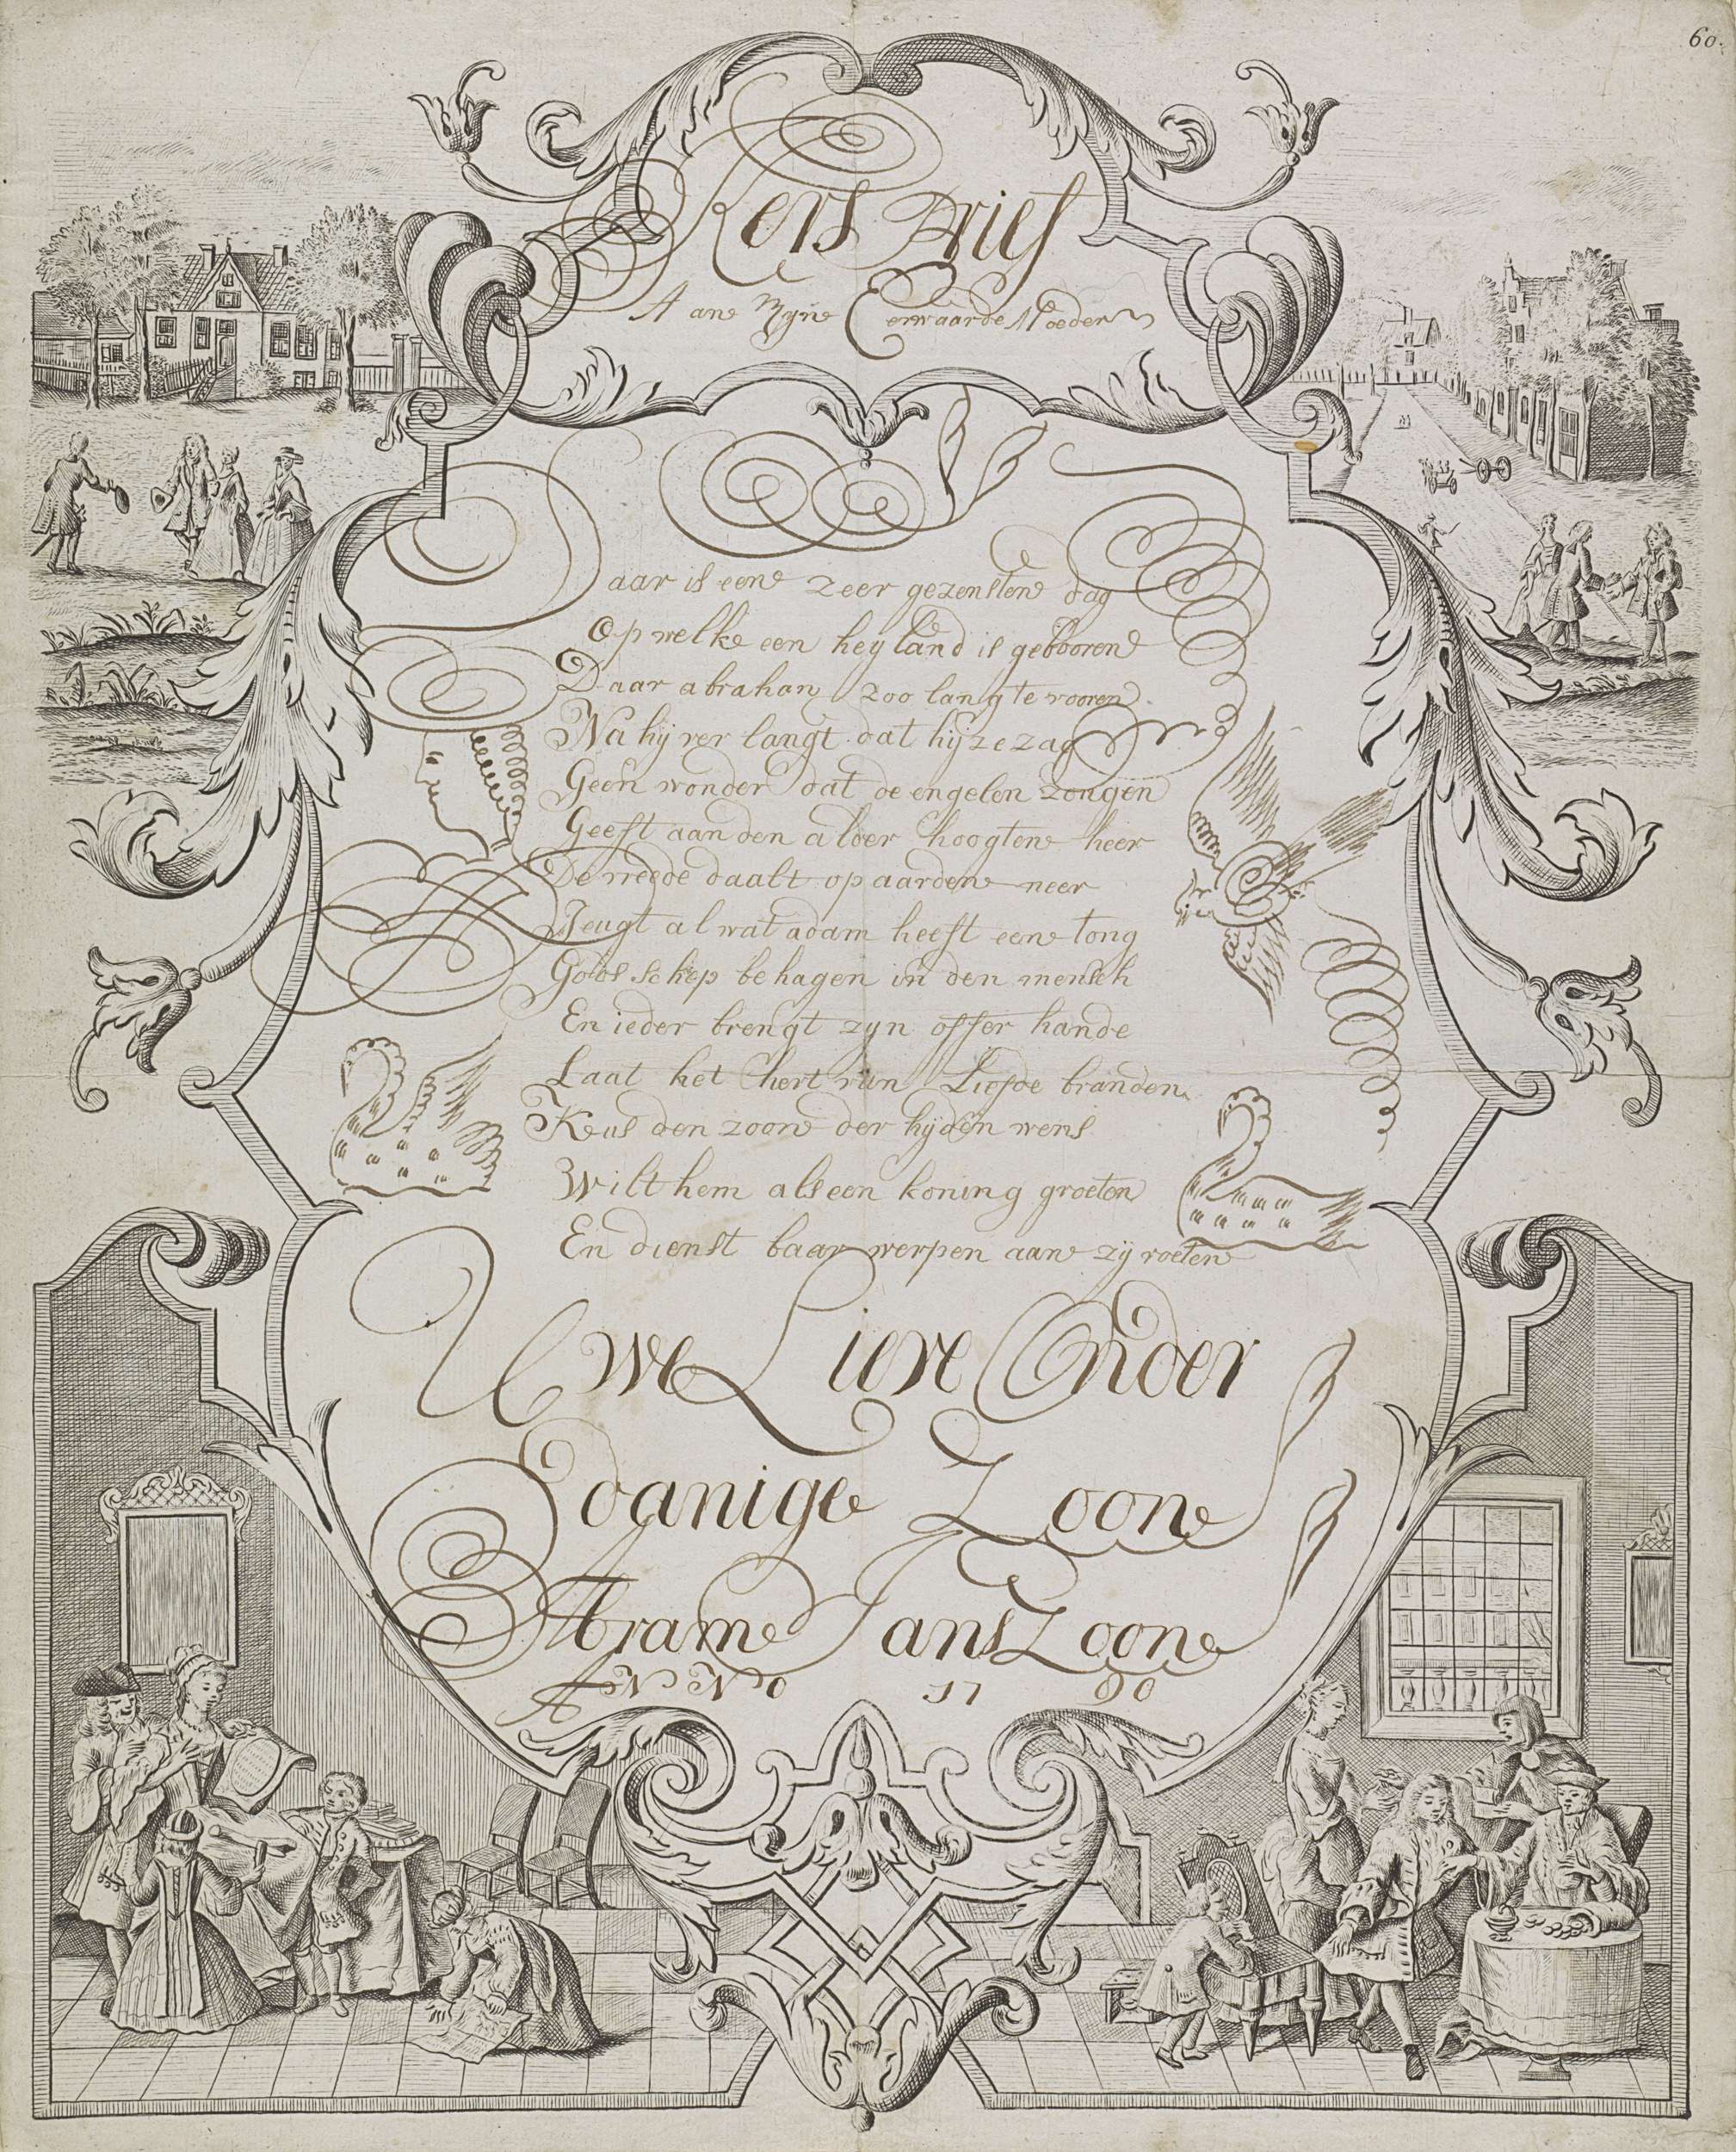 60.
Kers Brief
Aan Myne Eerwaarde Moeder
Daar is een zeer gezensten dag
Op welke een heyland is gebooren
Daar abraham zoo lang te vooren
Na hij ver langt dat hij ze zag
Geen wonder dat de engelen zongen
Geeft aan den alder hoogten heer
De vreede daalt op aarden neer
Jeugt al wat adam heeft een tong
Godds schep behagen in den mensch
En ieder brengt zyn offer hande
Laat het hert van Liefde branden
Keus den zoon der hyden wens
Wilt hem als een koning groeten
En dienst baar werpen aan zij voeten
Uwe Lieve Onder
Edanige Zoon
Abram Jans Zoon
ANNO 1790